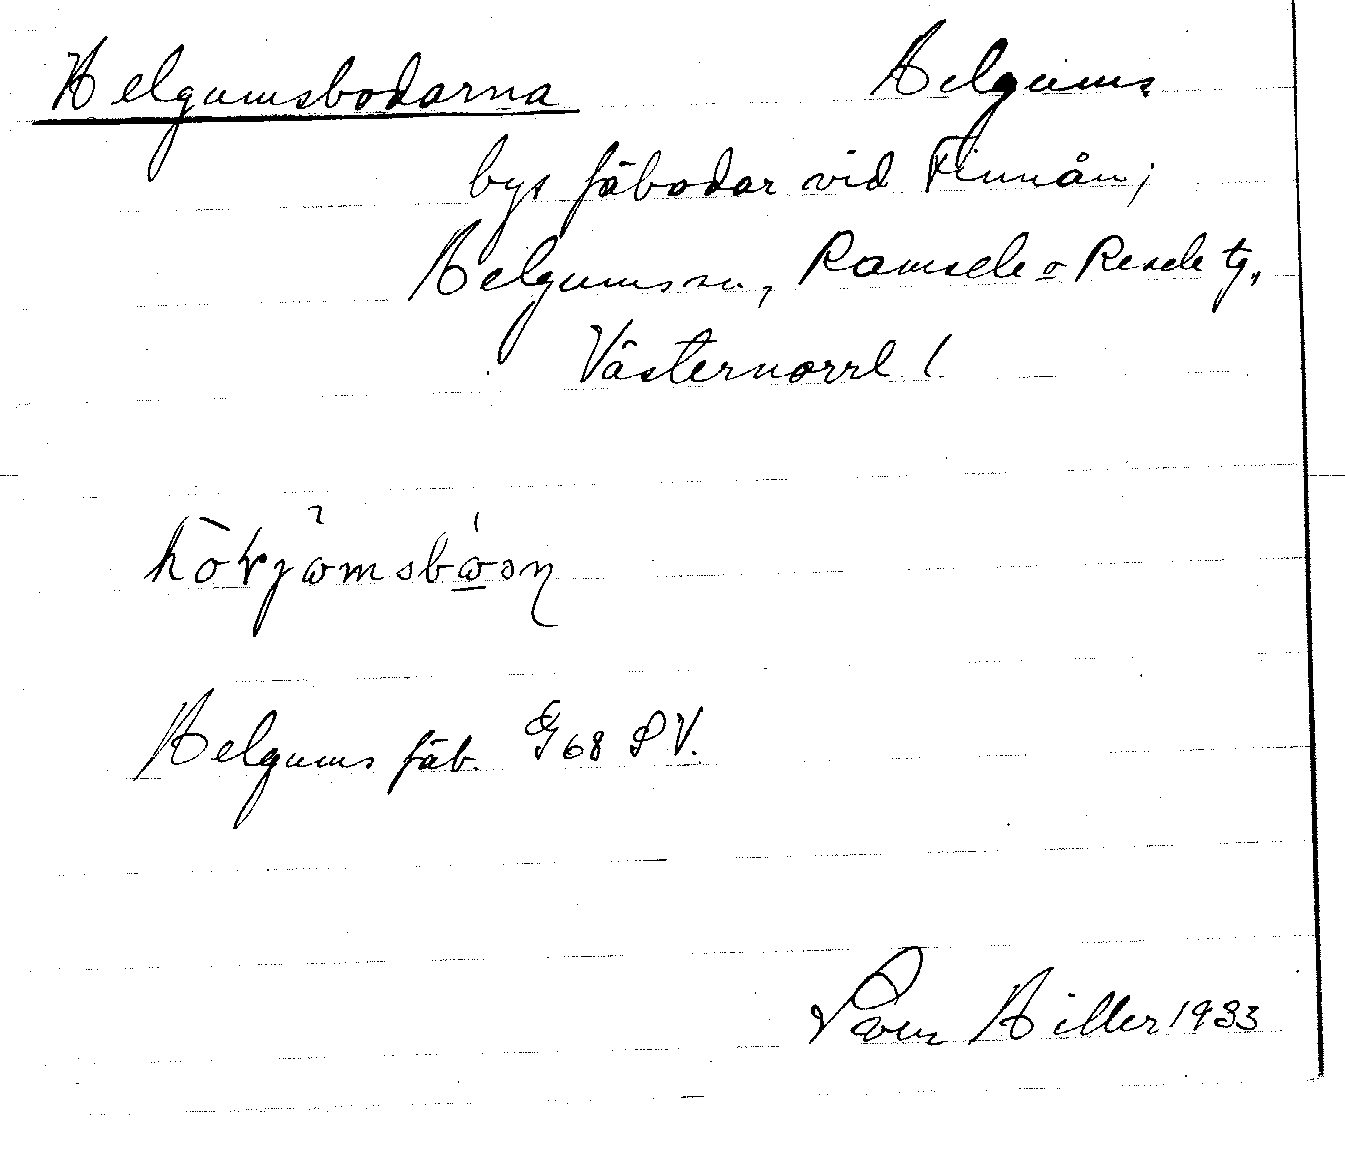 Helgumsbodarna Helgums
bys fäbodar vid Finnån;
Helgums sn, Ramsele o Resele tg,
Västernorrl l
Helgums fäb. G68 SV.
Sven Hiller 1933